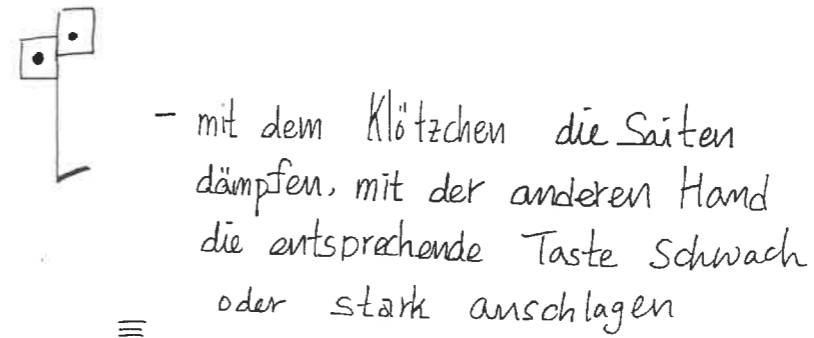 - mit dem Klötzchen die Saiten
dämpfen, mit der anderen Hand
die entsprechende Taste schwach
oder stark anschlagen